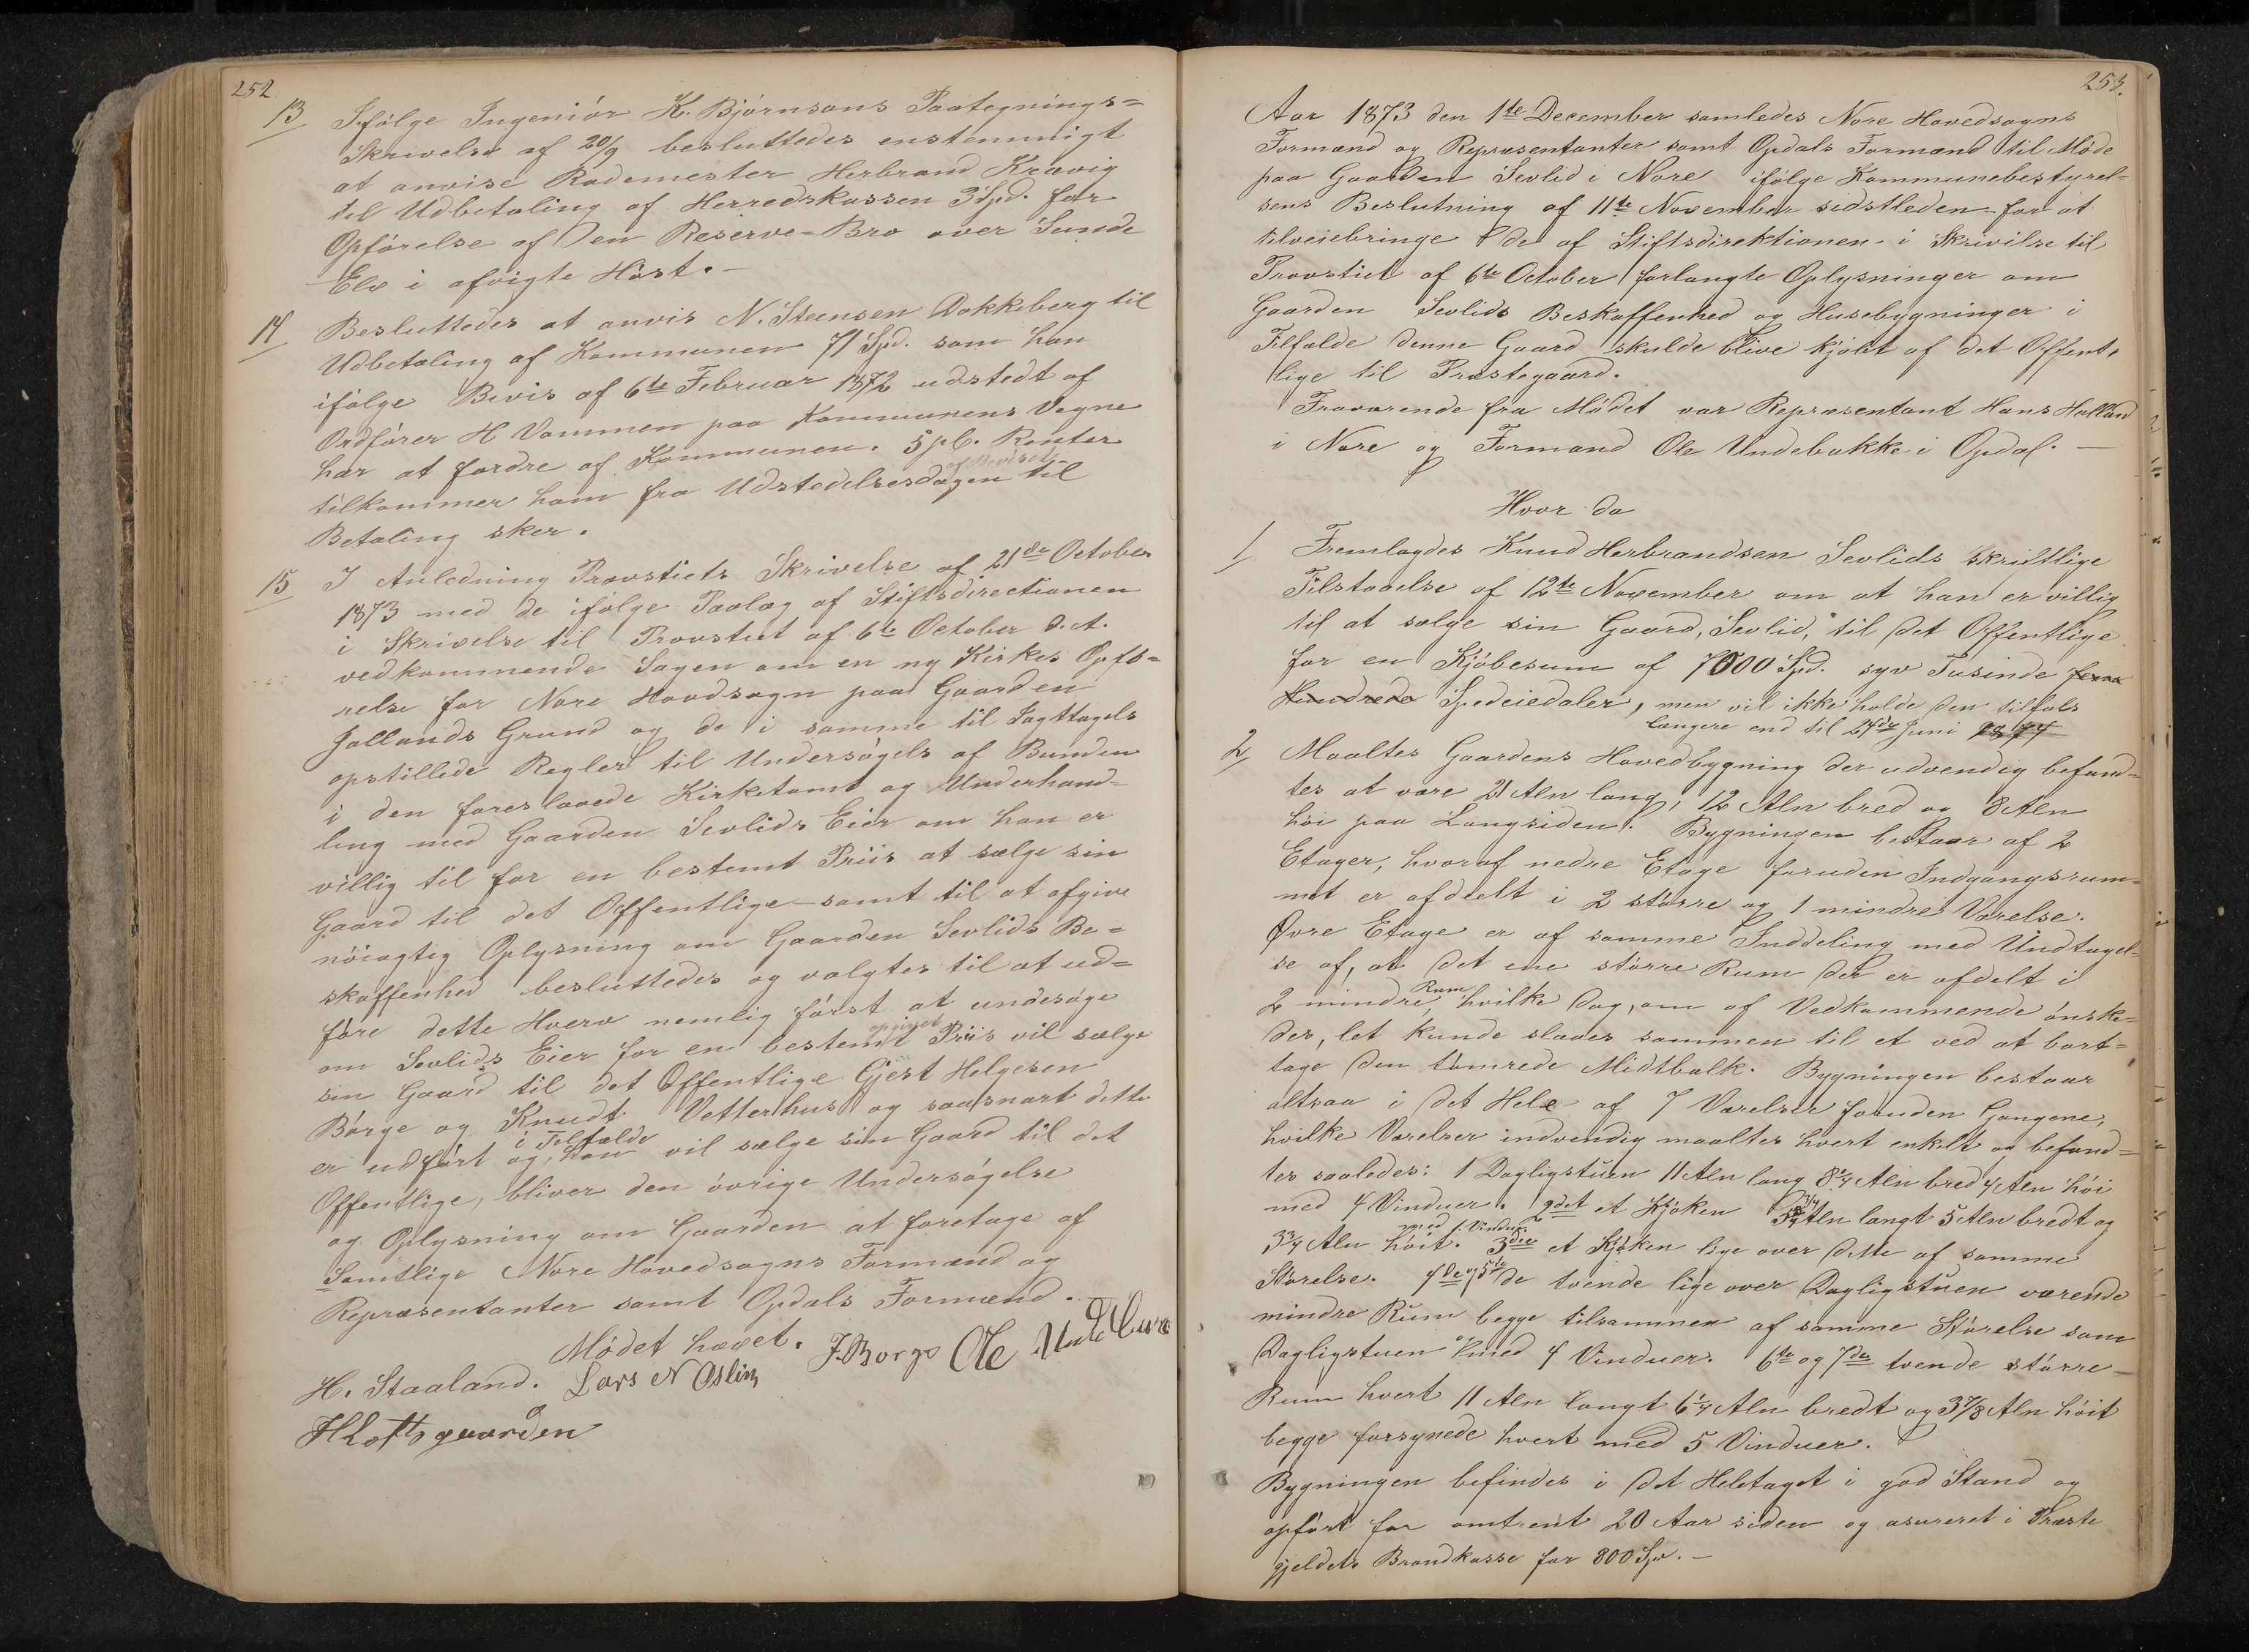 252.
13 Ifølge Ingeniör K. Bjørnsons Paategnings=
Skrivelse af 20/9 besluttedes enstemmigt
at anvise Rodemester Herbrand Kravig
til Udbetaling af Herredskassen 3 Spd. for
Opførelse af en Reserve=Bro over Sunde
Elv i afvigte Høst. —
14 Besluttedes at anvis N. Steensen Dokkeberg til
Udbetaling af Kommunen 71 Spd. som han
ifølge Bevis af 6te Februar 1872 udstedt af
Ordfører H Vammen paa Kommunens Vegne
har at fordre af Kommunen. 5 pC. Renter
tilkommer ham fra Udstedelsesdagen af Beviset til
Betaling sker.
15 I Anledning Provstiets Skrivelse af 21de October
1873 med de ifølge Paalæg af Stiftsdirectionen
i Skrivelse til Provstiet af 6te October d. A.
vedkommende Sagen om en ny Kirkes Opfø=
relse for Nore Hovdsogn paa Gaarden
Jallands Grund og de i samme til Iagttagels
opstillede Regler til Undersøgels af Bunden
i den foreslaaede Kirketomt og Underhand=
ling med Gaarden Sevlids Eier om han er
villig til for en bestemt Priis at sælge sin
Gaard til det Offentlige samt til at afgive
nøiagtig Oplysning om Gaarden Sevlids Be=
skaffenhed besluttedes og valgtes til at ud=
føre dette Hverv nemlig først at undesøge
om Sevlids Eier for en bestemt opgivet Priis vil sælge
sin Gaard til det Offentlige Gjest Helgesen
Børge og Knudt Vetterhus og saasnart dette
er udført og, i Tilfælde han vil sælge sin Gaard til det
Offentlige, bliver den øvrige Undersøgelse
og Oplysning om Gaarden at foretage af
Samtlige Nore Hovedsogns Formænd og
Repræsentanter samt Opdals Formænd. —
Mødet hævet.
H. Staaland. Lars N Oslin J. Borge Ole
H Loftsgaarden
253.
Aar 1873 den 1te December samledes Nore Hovedsogns
Formænd og Repræsentanter samt Opdals Formænd til Møde
paa Gaarden Sevlid i Nore ifølge Kommunebestyrel=
sens Beslutning af 11te November sidstleden for at
tilveiebringe de af Stiftsdirektionen i Skrivilse til
Provstiet af 6te October forlangte Oplysninger om
Gaarden Sevlids Beskaffenhed og Husebygninger i
Tilfælde denne Gaard skulde blive kjøbt af det Offent,
lige til Præstegaard.
Fraværende fra Mødet var Repræsentant Hans Halland
i Nore og Formand Ole Undebakke i Opdal. —
Hvor da
1 Fremlagdes Knud Herbrandsen Sevlids skriftlige
Tilstaaelse af 12te November om at han er villig
til at sælge sin Gaard, Sevlid, til det Offentlige
for en Kjøbesum af 7000 Spd. syv Tusinde fem
Hundrede Spedeiedaler, men vil ikke holde den tilfals
længere end til 24de Juni 1874
2 Maaltes Gaardens Hovedbygning der udvendig befand=
tes at være 21 Aln lang, 12 Aln bred og 8 Aln
høi paa Langsiden. Bygningen bestaar af 2
Etager, hvoraf nedre Etage foruden Indgangsrum=
met er afdelt i 2 større og 1 mindre Værelse.
Øvre Etage er af samme Inddeling med Undtagel=
se af, at det ene større Rum der er afdelt i
2 mindre Rum, hvilke dog, om af Vedkommende ønske=
des, let kunde slaaes sammen til et ved at bort=
tage den tømrede Midtbalk. Bygningen bestaar
altsaa i det Hele af 7 Værelser foruden Gangene,
hvilke Værelser indvendig maaltes hvert enkelt og befand=
tes saaledes: 1 Dagligstuen 11 Aln lang 8 1/4 Aln bred 4 Aln høi
med 4 Vinduer. 2det et Kjøken 5 3/4 Aln langt 5 Aln bredt og
3 3/4 Aln høit. med 1. Vindue 3die et Kjøken lige over dette af samme
Størelse. 4de og 5te de tvende lige over Dagligstuen værende
mindre Rum begge tilsammen af samme Størelse som
Dagligstuen med 4 Vinduer. 6te og 7de tvende større
Rum hvert 11 Aln langt 6 1/4 Aln bredt og 3 7/8 Aln høit
begge forsynede hvert med 5 Vinduer.
Bygningen befindes i det Heletaget i god Stand og
opført for omtrent 20 Aar siden og asureret i Præste
gjeldets Brandkasse for 800 Spd. —